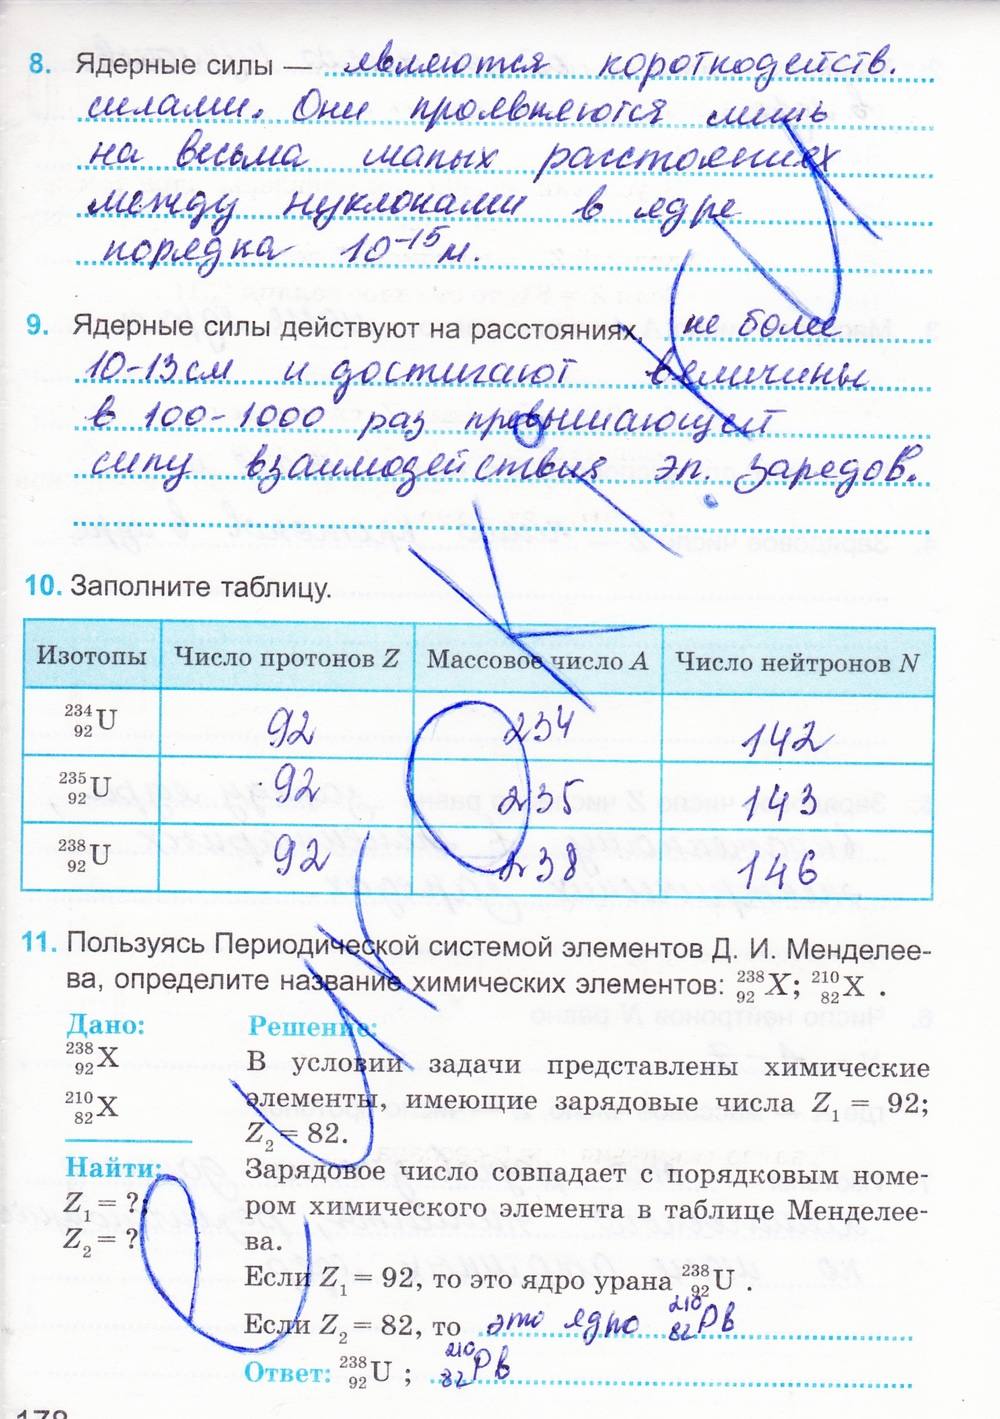 8. Ядерные силы — являются короткодейств.
силами. Они проявляются лишь
на весьма малых расстояниях
между нуклонами в ядре
порядка 10⁻¹⁵ м.
9. Ядерные силы действуют на расстояниях, не более
10-13 см и достигают величины
в 100-1000 раз превышающей
силу взаимодействия эл. зарядов.
10. Заполните таблицу.
Изотопы Число протонов Z Массовое число A Число нейтронов N
²³⁴₉₂U 92 234 142
²³⁵₉₂U 92 235 143
²³⁸₉₂U 92 238 146
11. Пользуясь Периодической системой элементов Д. И. Менделее-
ва, определите название химических элементов: ²³⁸₉₂X; ²¹⁰₈₂X .
Дано:
²³⁸₉₂X
²¹⁰₈₂X
Найти:
Z₁ = ?;
Z₂ = ?
Решение:
В условии задачи представлены химические
элементы, имеющие зарядовые числа Z₁ = 92;
Z₂ = 82.
Зарядовое число совпадает с порядковым номе-
ром химического элемента в таблице Менделее-
ва.
Если Z₁ = 92, то это ядро урана ²³⁸₉₂U .
Если Z₂ = 82, то это ядро ²¹⁰₈₂Pb
Ответ: ²³⁸₉₂U ; ²¹⁰₈₂Pb